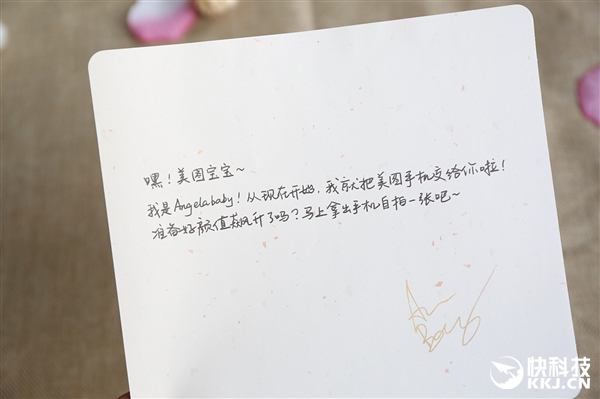 嘿！美图宝宝~
我是Angelababy！从现在开始，我就把美图手机交给你啦！
准备好颜值飙升了吗？马上拿出手机自拍一张吧~
快科技
KKJ.CN